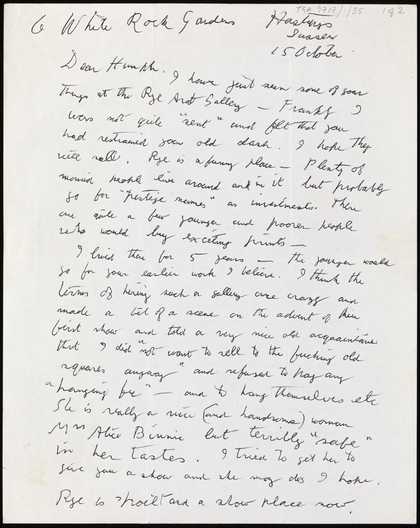 TGA 9717/1/35 1 of 2
6 White Rock Gardens
Hastings
Sussex
15 October
Dear Humph. I have just seen some of your
things at the Rye Art Gallery – Frankly I
was not quite "sent" and felt that you
had restrained your old dash. I hope they
will sell. Rye is a funny place – Plenty of
monied people live around and in it but probably
go for "Prestige names" as investments. There
are quite a few younger and poorer people
who would buy exciting prints –
I lived there for 5 years – the younger would
go for your earlier work I believe. I think the
terms of hiring such a gallery are crazy and
made a bit of a scene on the advent of their
first show and told a very nice old acquaintance
that I did "not want to sell to the fucking old
squares anyway" and refused to pay any
"hanging fee" – and to hang themselves etc
She is really a nice (and handsome) woman
Mrs Alice Binnie but terribly "safe"
in her tastes. I tried to get her to
give you a show and she may do I hope.
Rye is spoilt and a show place now.